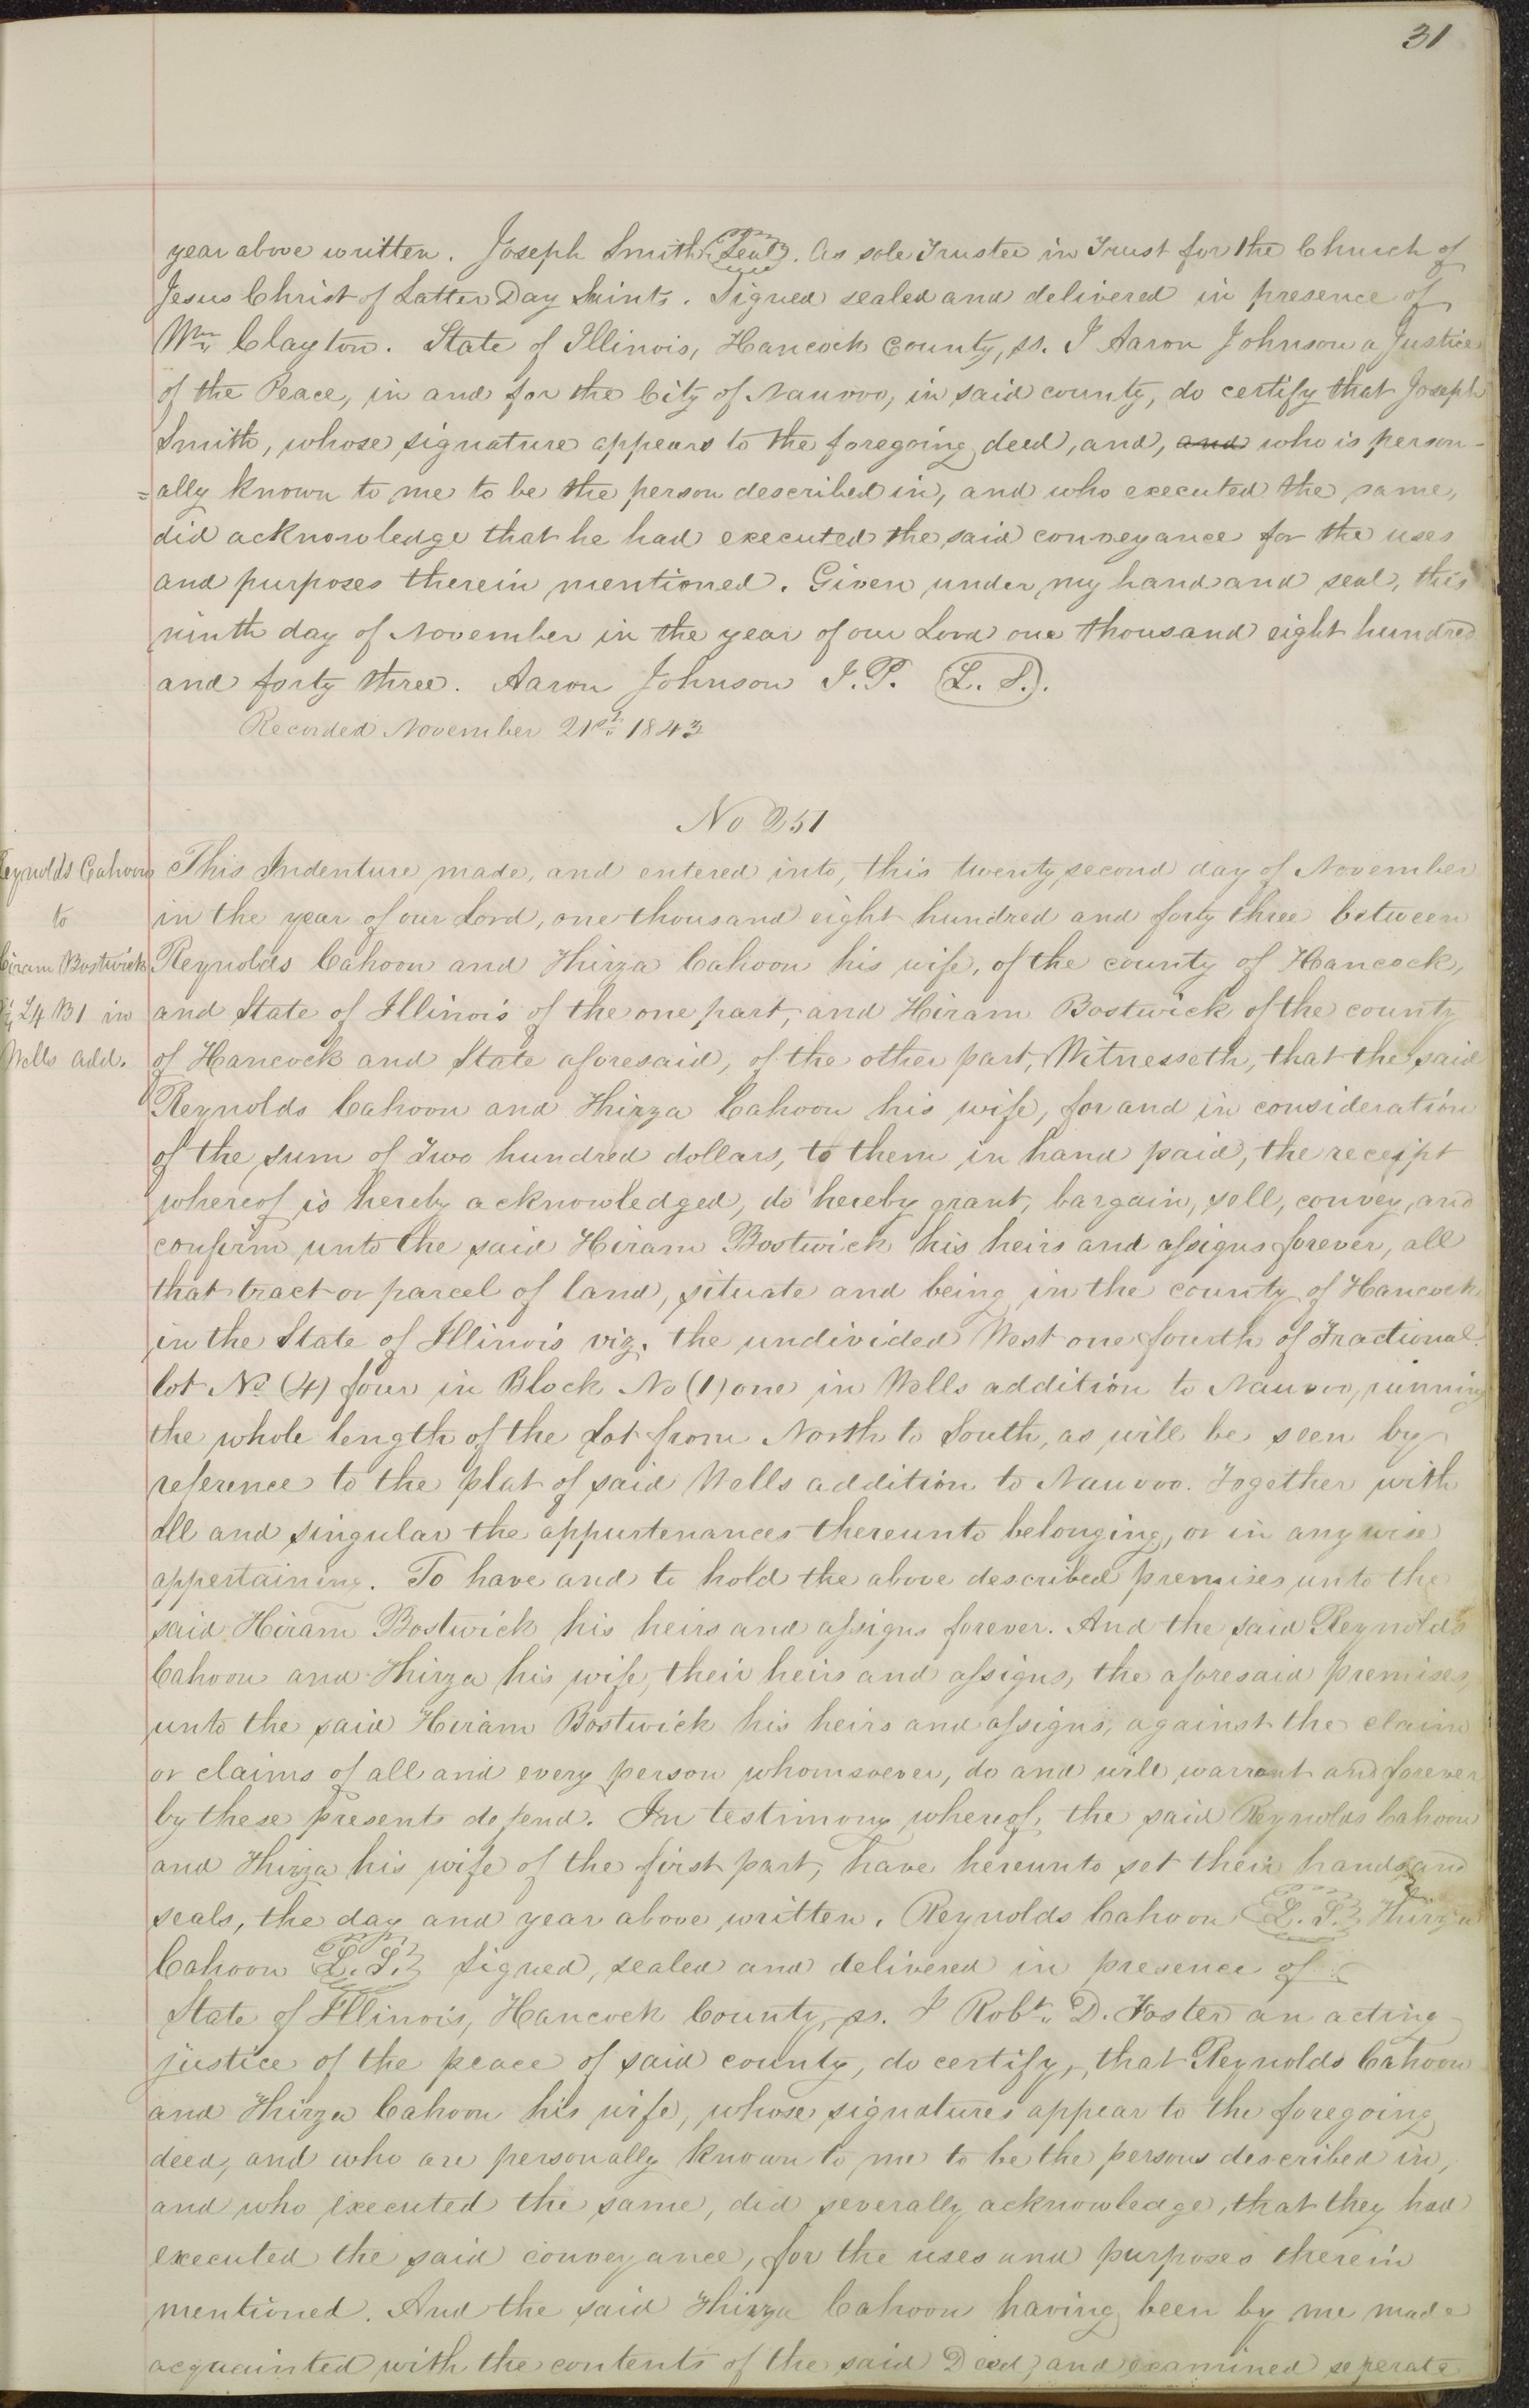 31
year above written. Joseph Smith (Seal). As sole Trustee in Trust for the Church of
Jesus Christ of Latter Day Saints. Signed sealed and delivered in presence of
Wm Clayton. State of Illinois, Hancock County, ss. I Aaron Johnson a Justice
of the Peace, in and for the City of Nauvoo, in said county, do certify that Joseph
Smith, whose signature appears to the foregoing deed, and, and who is person-
=ally known to me to be the person described in, and who executed the same,
did acknowledge that he had executed the said conveyance for the uses
and purposes therein mentioned. Given under my hand and seal, this
ninth day of November in the year of our Lord one thousand eight hundred
and forty three. Aaron Johnson J.P. (L. S.).
Recorded November 21st 1843
No 251
Reynolds Cahoon
to
Hiram Bostwick
L4 B1 in
Wells add.
This Indenture made, and entered into, this twenty second day of November
in the year of our Lord, one thousand eight hundred and forty three between
Reynolds Cahoon and Thirza Cahoon his wife, of the county of Hancock,
and State of Illinois of the one part, and Hiram Bostwick of the county
of Hancock and State aforesaid, of the other part, Witnesseth, that the said
Reynolds Cahoon and Thirza Cahoon his wife, for and in consideration
of the sum of Two hundred dollars, to them in hand paid, the receipt
whereof is hereby acknowledged, do hereby grant, bargain, sell, convey, and
confirm unto the said Hiram Bostwick his heirs and assigns forever, all
that tract or parcel of land, situate and being in the county of Hancock
in the State of Illinois viz. the undivided West one fourth of Fractional
lot No (4) four in Block No (1) one in Wells addition to Nauvoo, running
the whole length of the Lot from North to South, as will be seen by
reference to the plat of said Wells addition to Nauvoo. Together with
all and singular the appurtenances thereunto belonging, or in any wise
appertaining. To have and to hold the above described premises unto the
said Hiram Bostwick his heirs and assigns forever. And the said Reynolds
Cahoon and Thirza his wife, their heirs and assigns, the aforesaid premises,
unto the said Hiram Bostwick his heirs and assigns, against the claim
or claims of all and every person whomsoever, do and will warrant and forever
by these presents defend. In testimony whereof, the said Reynolds Cahoon
and Thirza his wife of the first part, have hereunto set their hands and
seals, the day and year above written. Reynolds Cahoon (L. S.) Thirza
Cahoon (L. S.) Signed, sealed and delivered in presence of
State of Illinois, Hancock County, ss. I Robt. D. Foster an acting
justice of the peace of said county, do certify, that Reynolds Cahoon
and Thirza Cahoon his wife, whose signatures appear to the foregoing
deed, and who are personally known to me to be the persons described in,
and who executed the same, did severally acknowledge, that they had
executed the said conveyance, for the uses and purposes therein
mentioned. And the said Thirza Cahoon having been by me made
acquainted with the contents of the said Deed, and examined seperate